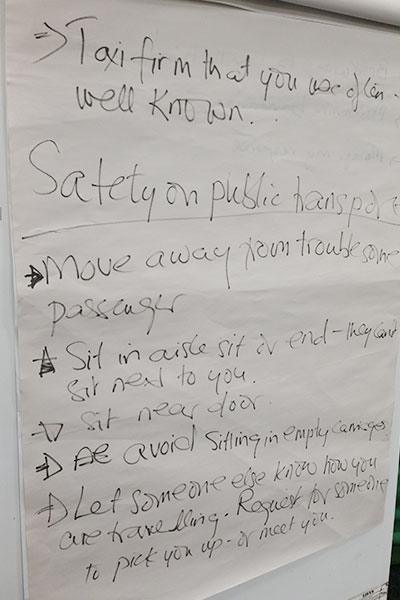 => Taxi firm that you use often -
well known.
Safety on public transport
Move away from troublesome
passenger
Sit in aisle sit or end - they can't
sit next to you.
sit near door.
=> avoid sitting in empty carriages
=> Let someone else know how you
are travelling. Request for someone
to pick you up - or meet you.